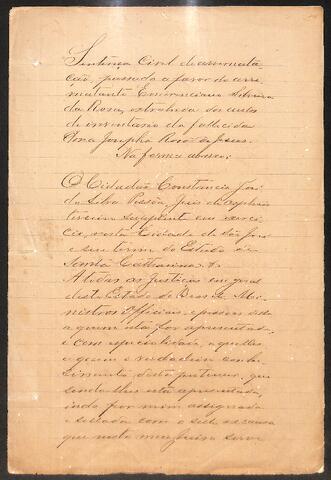 Sentença Civel de arremata
ção, passada a favor do arre
matante Emerenciano Silveira
da Rosa, extrahida dos autos
de inventario da fallecida
Dona Josepha Rosa de Jesus.
Na forma abaixo:
O Cidadão Constancio José
da Silva Pessôa, juis de orphãos
terceiro supplente em exerci
cio, nesta Cidade de São José
e seu termo do Estado de
Santa Catharina &.
A todas as justiças em geral
deste Estado do Brasil, Mi
nistros Officiaes, e pessôas
a quem esta for apresentada
e com especialidade, a quelles
a quem a
esta pertencer, que
sendo lhes esta apresentada,
indo por mim assignada
e sellada com o sello
que nesta serve